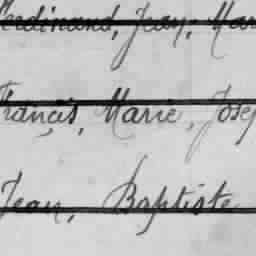 Ferdinand, Jean, Mar
François, Marie, Josep
Jean, Baptiste